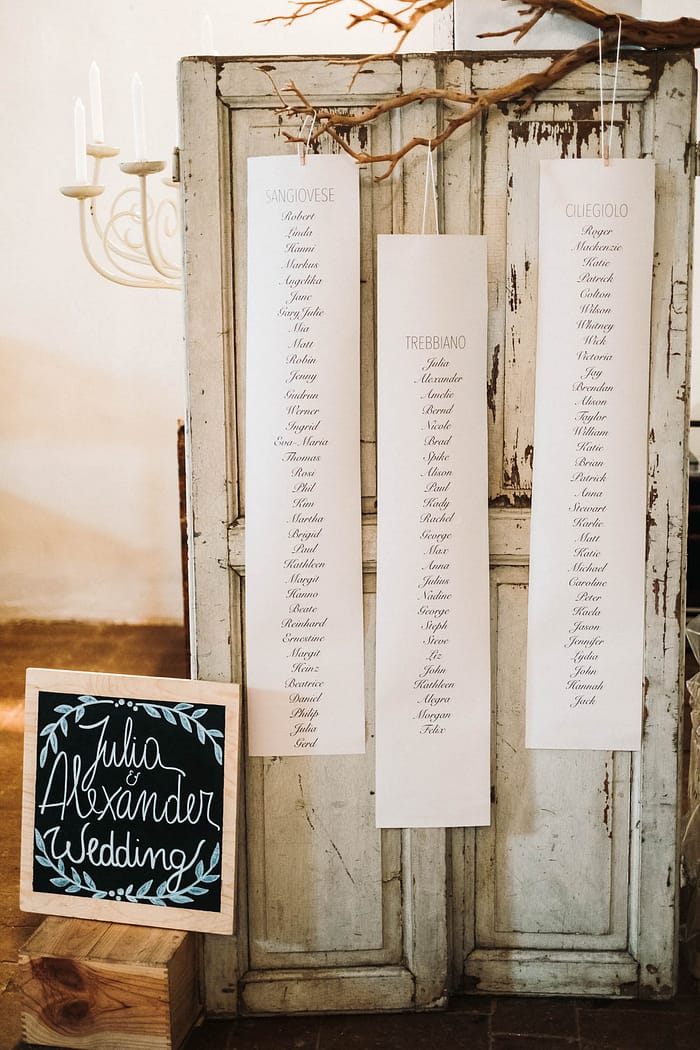 SANGIOVESE
Robert
Linda
Hanni
Markus
Angelika
Jane
Gary Julie
Mia
Matt
Robin
Jenny
Gudrun
Werner
Ingrid
Eva-Maria
Thomas
Rosi
Phil
Kim
Martha
Brigid
Paul
Kathleen
Margit
Hanno
Beate
Reinhard
Ernestine
Margit
Heinz
Beatrice
Daniel
Philip
Julia
Gerd
TREBBIANO
Julia
Alexander
Amelie
Bernd
Nicole
Brad
Spike
Alison
Paul
Kady
Rachel
George
Max
Anna
Julius
Nadine
George
Steph
Steve
Liz
John
Kathleen
Alegra
Morgan
Felix
CILIEGIOLO
Roger
Mackenzie
Katie
Patrick
Colton
Wilson
Whitney
Wick
Victoria
Jay
Brendan
Alison
Taylor
William
Katie
Brian
Patrick
Anna
Stewart
Karlie
Matt
Katie
Michael
Caroline
Peter
Kaela
Jason
Jennifer
Lydia
John
Hannah
Jack
Julia
&
Alexander
Wedding